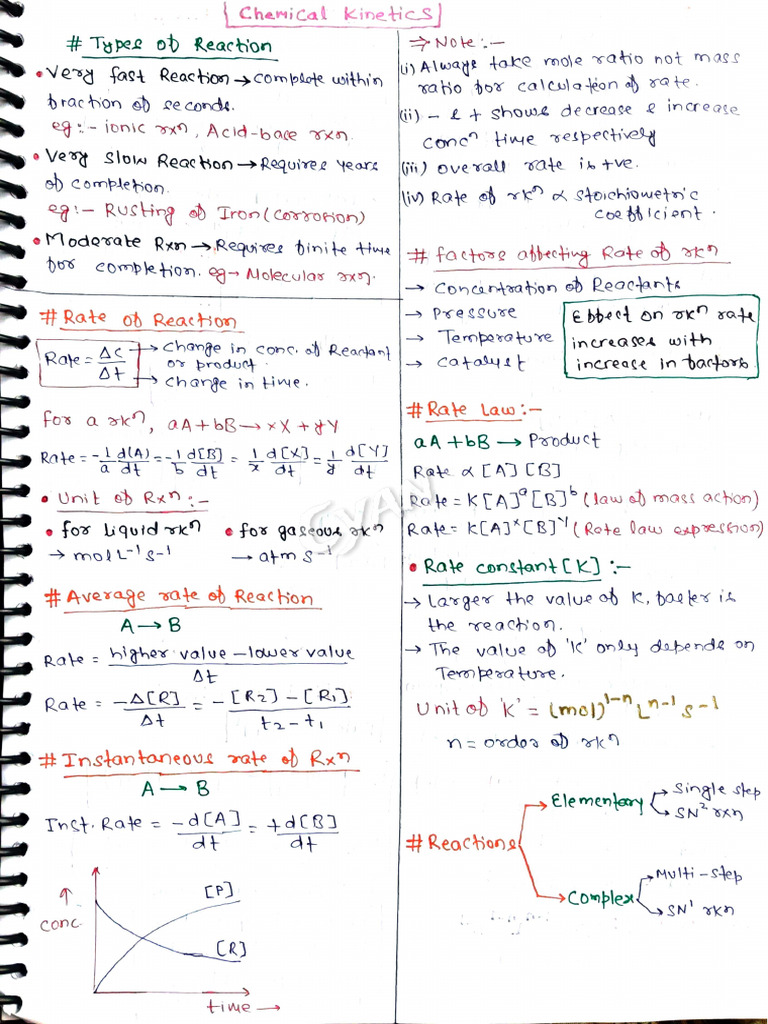 Chemical Kinetics
# Types of Reaction
• Very fast Reaction → complete within
fraction of seconds.
eg:- ionic rxn, Acid-bace rxn.
• Very slow Reaction → Requires years
of completion.
eg:- Rusting of Iron (corrotion)
• Moderate Rxn → Requires finite time
for completion. eg → Molecular rxn.
# Rate of Reaction
Rate = Δc/Δt
→ change in conc. of Reactant
or product.
→ change in time.
for a rxⁿ, aA + bB → xX + yY
Rate = -1/a d(A)/dt = -1/b d[B]/dt = 1/x d[X]/dt = 1/y d[Y]/dt
• Unit of Rxⁿ:-
• for liquid rxⁿ • for gaseous rxⁿ
→ mol L⁻¹ s⁻¹ → atm s⁻¹
# Average rate of Reaction
A → B
Rate = higher value - lower value / Δt
Rate = -Δ[R]/Δt = - [R₂] - [R₁] / t₂ - t₁
# Instantaneous rate of Rxⁿ
A → B
Inst. Rate = -d[A]/dt = +d[B]/dt
↑
conc.
[P]
[R]
time →
⇒ Note:-
(i) Always take mole ratio not mass
ratio for calculation of rate.
(ii) - & + shows decrease & increase
concⁿ time respectively
(iii) overall rate is +ve.
(iv) Rate of rxⁿ ∝ stoichiometric
coefficient.
# factors affecting Rate of rxⁿ
→ concentration of Reactants
→ Pressure
→ Temperature
→ catalyst
Effect on rxⁿ rate
increases with
increase in factors.
# Rate Law:-
aA + bB → Product
Rate ∝ [A] [B]
Rate = K[A]ᵃ[B]ᵇ (law of mass action)
Rate = K[A]ˣ[B]ʸ (Rate law expression)
• Rate constant [K]:-
→ Larger the value of K, faster is
the reaction.
→ The value of 'K' only depends on
Temperature.
Unit of 'K' = (mol)¹⁻ⁿ Lⁿ⁻¹ s⁻¹
n = order of rxⁿ
# Reactions
→ Elementary
→ Single step
→ SN² rxn
→ Complex
→ Multi-step
→ SN¹ rxn
GYAN